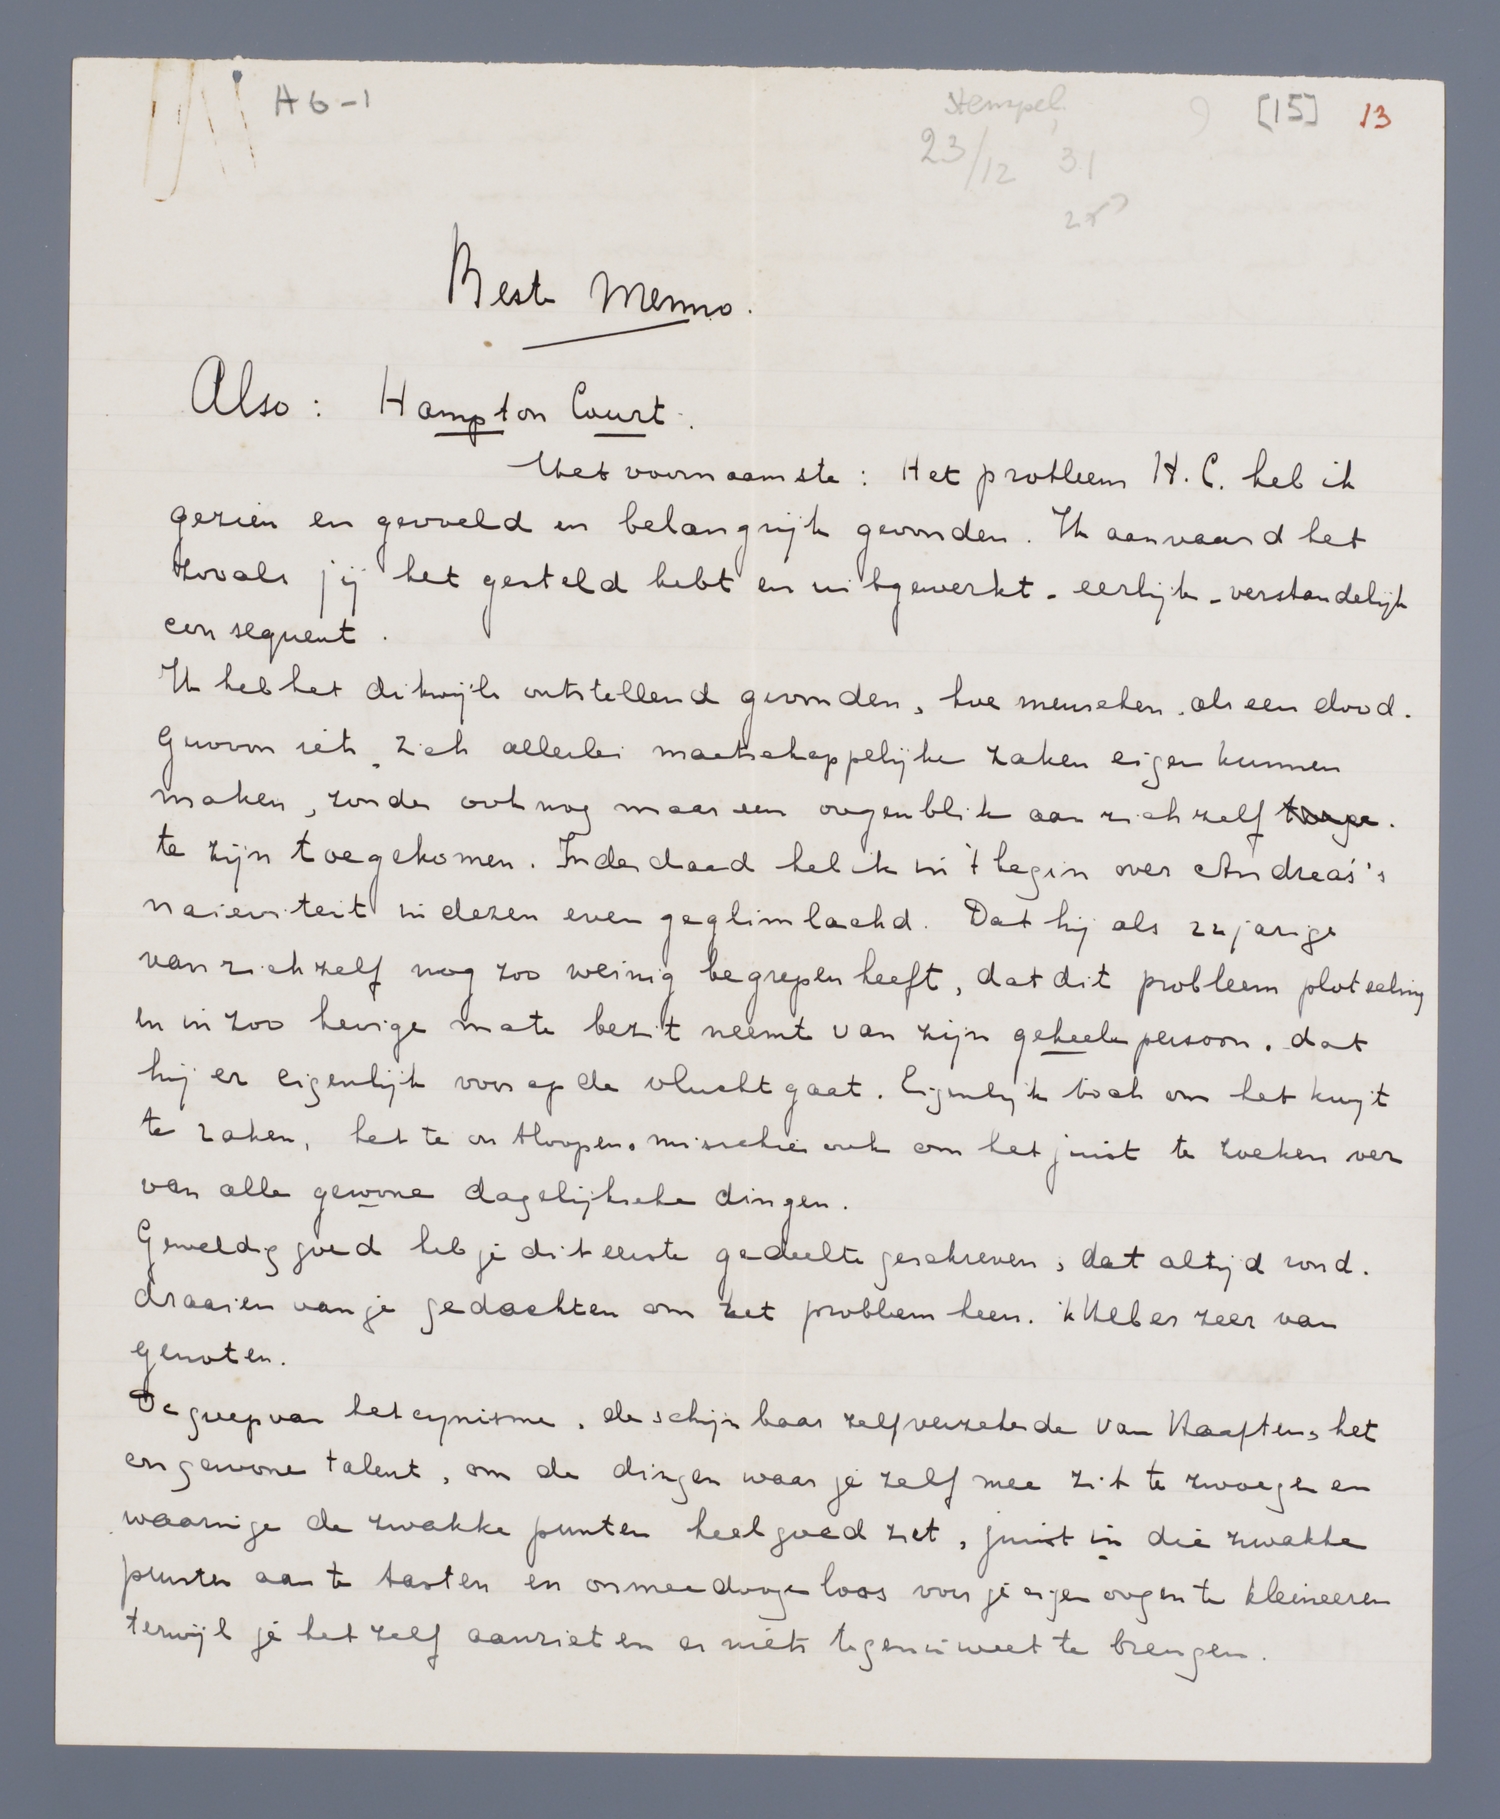 A6-1
stempel
[15] 13
23/12 31
Beste Menno.
Also: Hampton Court.
Het voornaamste: Het probleem H.C. heb ik
gezien en gevoeld en belangrijk gevonden. Ik aanvaard het
zooals jij het gesteld hebt en uitgewerkt - eerlijk - verstandelijk
consequent.
Ik heb het dikwijls ontstellend gevonden, hoe menschen, als een dood.
gewoon iets, zich allerlei maatschappelijke zaken eigen kunnen
maken, zonder ook nog maar een oogenblik aan zich zelf
te zijn toegekomen. Inderdaad heb ik in 't begin over Andreas's
naieviteit in dezen even geglimlachd. Dat hij als 22 jarige
van zich zelf nog zoo weinig begrepen heeft, dat dit probleem plotseling
en in zoo hevige mate bezit neemt van zijn geheele persoon, dat
hij er eigenlijk voor op de vlucht gaat. Eigenlijk toch om het kwijt
te raken, het te ontloopen, misschien ook om het juist te zoeken ver
van alle gewone dagelijksche dingen.
Geweldig goed heb je dit eerste gedeelte geschreven, dat altijd rond.
draaien van je gedachten om het probleem heen. ik heb er zeer van
genoten.
De greep van het cynisme, de schijnbaar zelfverzekerde van Haaften, het
ongewone talent, om de dingen waar je zelf mee zit te zwoegen en
waarin je de zwakke punten heel goed ziet, juist in die zwakke
punten aan te tasten en onmeedoogenloos voor je eigen oogen te kleineeren
terwijl je het zelf aanziet en er niets tegen in weet te brengen.